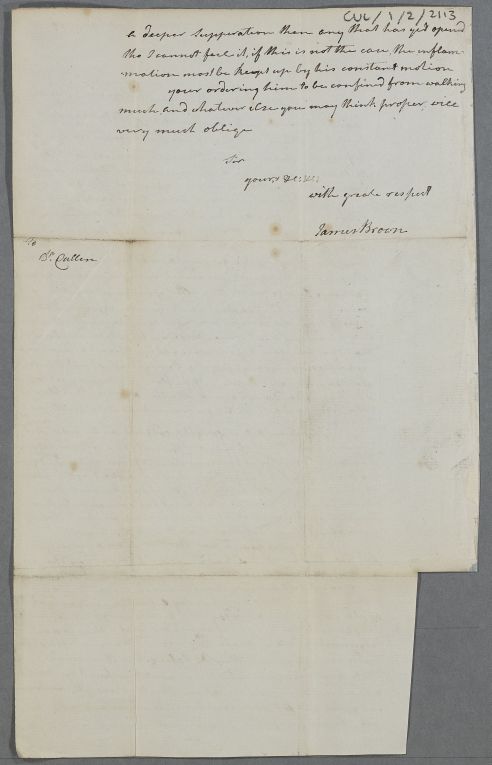 CUL/1/2/2113
a deeper Supperation then any that has yet opend
tho I cannot feel it, if this is not the case, the inflam
mation most be keept up by his constant motion
your ordering him to be confined from walking
much and whatever else you may think proper, will
very much oblige
Sir
yours &c:
with greate respect
James Broun
To
Dr. Cullen